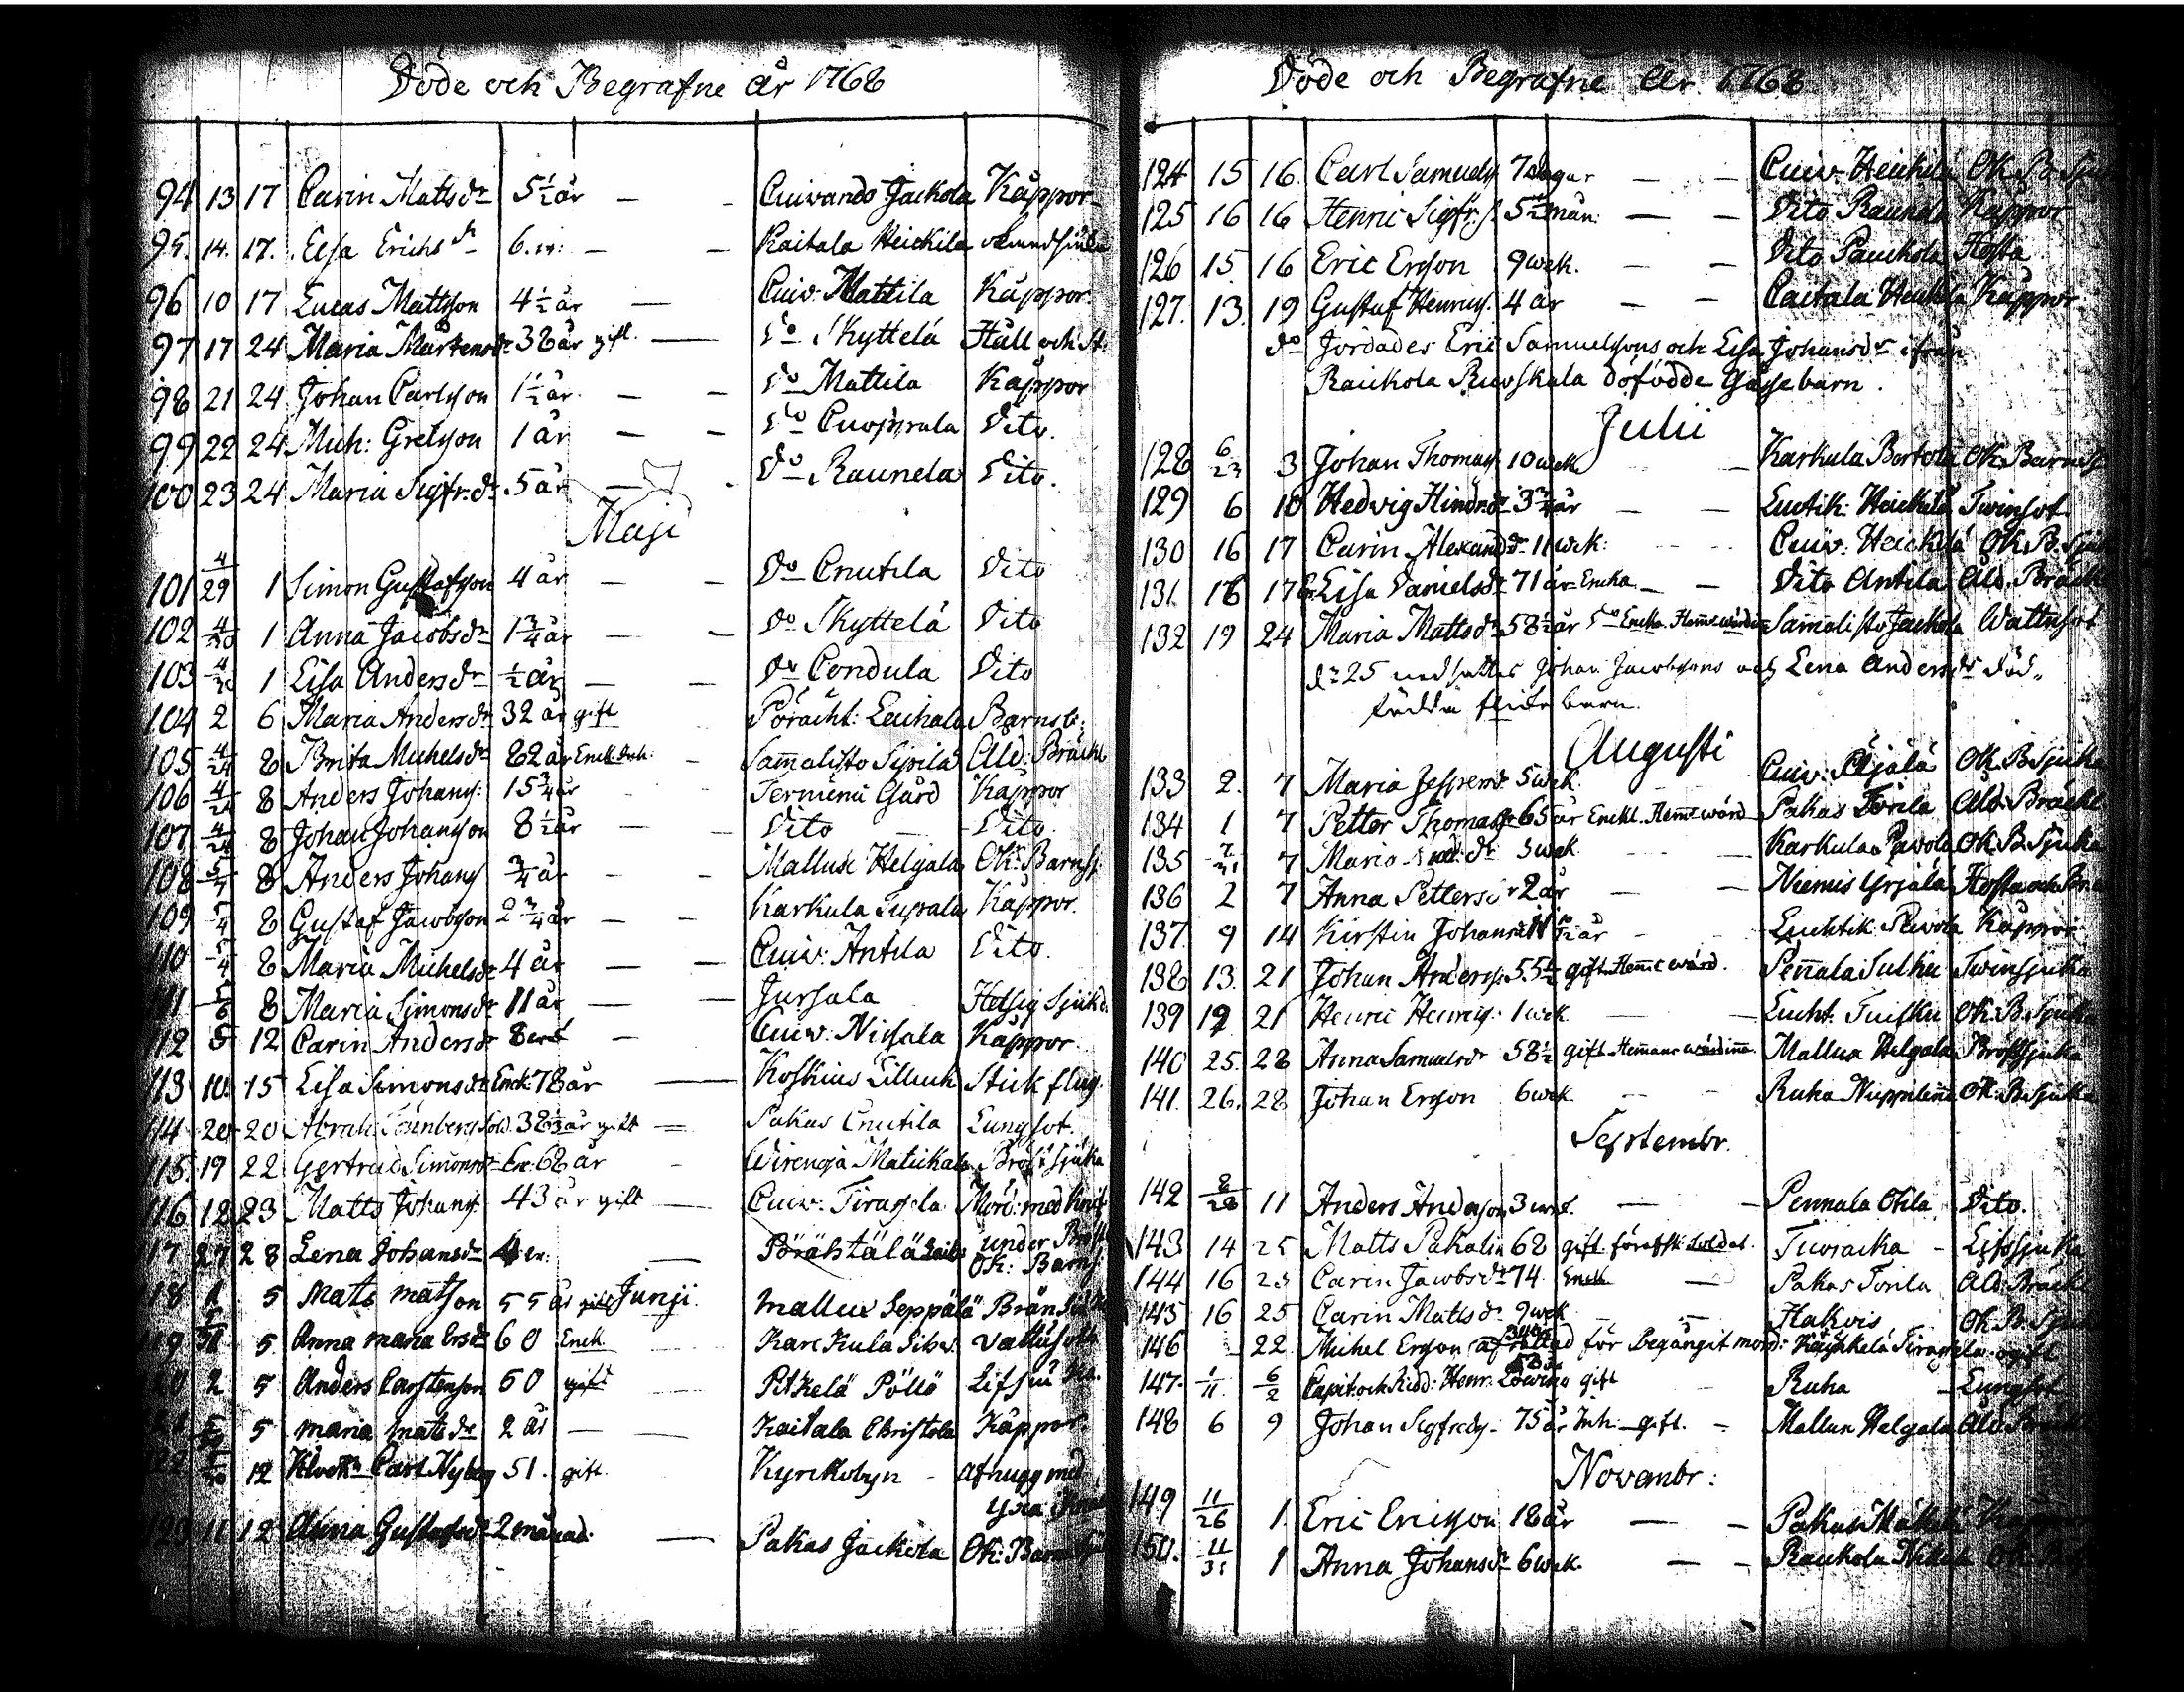 Döde och Begrafne år 1768
94 13 17 Carin Mattsdr 5½ år — - Cuivando Jackola Kåppor
95. 14. 17. Elsa Erichsdr 6. — - Kaitala Heickilä
96 10 17 Lucas Mattsson 4½ år — Cuiv: Mattila Kåppor
97 17 24 Maria Mårtensdr 38 år gift — Do Skyttelä Håll och St.
98 21 24 Johan Carlsson 1½ år — - Do Mattila Kåppor
99 22 24 Mich: Grelsson 1 år — - Do Cuoppala Dito.
100 23 24 Maria Sigfr.dr 5 år — - Do Raunela Dito.
Maji
101 4/29 1 Simon Gustafsson 4 år — - Do Cnutila Dito
102 4/30 1 Anna Jacobsdr 1¾ år — - Do Skyttelä Dito
103 4/30 1 Lisa Andersdr ½ år — - Do Condula Dito
104 2 6 Maria Andersdr 32 år gift Poracht: Barnsb:
105 4/24 8 Brita Michelsdr 82 år Enck. - Sam̄alisto Sipilä Åld: Bräckl
106 4/24 8 Anders Johanss: 15¾ år Terninni Gård Kåppor
107 4/24 8 Johan Johansson 8½ år — - Dito — Dito.
108 5/4 8 Anders Johanss ¾ år — - Mallusi Helgala Ok: Barnsj.
109 5/4 8 Gustaf Jacobsson 2¾ år — - Karkula Kåppor.
110 5/4 8 Maria Michelsdr 4 år — — Cuiv: Antila Dito.
111 5/6 8 Maria Simonsdr 11 år — — Jursala Hetsig Sjukd.
112 5 12 Carin Andersdr 8 — Cuiv: Nissala Kåppor
113 10. 15 Lisa Simonsdr Enck: 78 år — Koskius Stick flug.
114 20 20 Abrah: Sold. 38½ år gift — Pakas Cnutila Lungsot.
115. 19 22 Gertrud Simonsdr En: 68 år - Wirenoja Matickala Bröst sjuka
116 18 23 Matts Johanss: 43 år gift — Cuiv: Tiragela Mörd: med knif
under Bröstet
117 27 28 Lena Johansdr 4 — Pörähtälä Ok: Barnsj.
Junji.
118 1 5 Mats matson 55 år gift mallux Seppälä Brän
119 5/31 5 Anna maria Ersdr 60 Enck Kare Kula
120 2 5 Anders Carstenson 50 gift — Pitkelä Pöllö Lifsiu Ka.
121 5 maria matsdr 2 år — Kaitala Christola Kåppor.
122 5/30 12 Carl Nyberg 51. gift. Kyrckobyn - afhugg med
yxa
123 11 12 Anna Gustafsdr 2 månad. — Pakas Jackola Ok: Barn
Döde och Begrafne År 1768
124 15 16. Carl Samuelss. 7 dagar — - Cuiv. Heickilä Ok. B. Sjuk
125 16 16 Henric Sigfr: s. 5½ mån: — - Dito Raunela Kåppor
126 15 16 Eric Ersson 9 wek. — - Dito Pauckola Hosta
127. 13. 19 Gustaf Henricss. 4 år — - Caitala Heickilä Kåppor
do Jordades Eric Samuelssons och Lisa Johansdr ifrån
Rauckola Ruoskala döfödde Gåsse barn.
Julii
128 6/23 3 Johan Thomass 10 wek — Karkula Bertola Ok. Barnsj
129 6 10 Hedvig Hindr.dr 3¾ år — - Luctik: Heickilä Twinsot
130 16 17 Carin Alexandrdr 11 wek: - - Cuiv: Heickilä Ok. B. Sjuk
131. 16 17 Lisa Danielsdr 71 år Encka — - Dito Antila Åld. Bräckl
132 19 24 Maria Mattsdr 58½ år Do Encka. Hem̄s wärdin̄a Sam̄alisto Jackola Wattusot
dn 25 nedsattes Johan Jacobssons och Lena Andersdr död-
födda barn.
Augusti
133 2. 7 Maria Jespersdr 5 wek. Cuiv: Äijälä Ok. B. Sjuka
134 1 7 Petter Thomass 65 år Enckl. Hem̄s wärd Pakas Torila Åld. Bräckl
135 7/31 7 Maria dr 5 wek - - Karkula Pavola Ok. B. Sjuka
136 2 7 Anna Pettersdr 2 år — - Niemis Yrjälä Hosta och
137. 9 14 Kirstin Johansdr år - Luchtik. Pavola Kåppor
138 13. 21 Johan Anderss. 55½ gift. Hem̄s wärd. Pen̄ala Sulku Twinsjuka
139 19 21 Henric Henricss. 1 wek — Lucht. Tuisku Ok. B. Sjuka
140 25. 28 Anna Samuelsdr 58½ gift. Hem̄ans wärdin̄a. Mallux Helgala Bröstsjuka
141. 26. 28 Johan Ersson 6 wek - - Ruha Ok. B. Sjuka
Septembr.
142 8/28 11 Anders Andersson 3 wek. — - Pennala Ohla Dito.
143 14 25 Matts Pakalin 68 gift. förafsk: Soldat. Tuoracka - Lifssjuka
144 16 25 Carin Jacobsdr 74 Enck — Pakas Torila Åld. Bräckl
145 16 25 Carin Mattsdr 9 wek — Hakois Ok. B. Sjuk
146 22 Michel Ersson afrättad för Begångit mord: Tiragela
147. 1/11. 6/2 Capit. och Ridd: Henr: gift — Ruha - Lungsot
148 6 9 Johan Sigfredss. 75 år Inh. gift. - Mallux Helgala Åld. Bräckl
Novembr:
149 11/26 1. Eric Ericsson 18 år — - Pakas Kåppor
150. 11/31 1 Anna Johansdr 6 wek. — - Rauckola Ok. B.